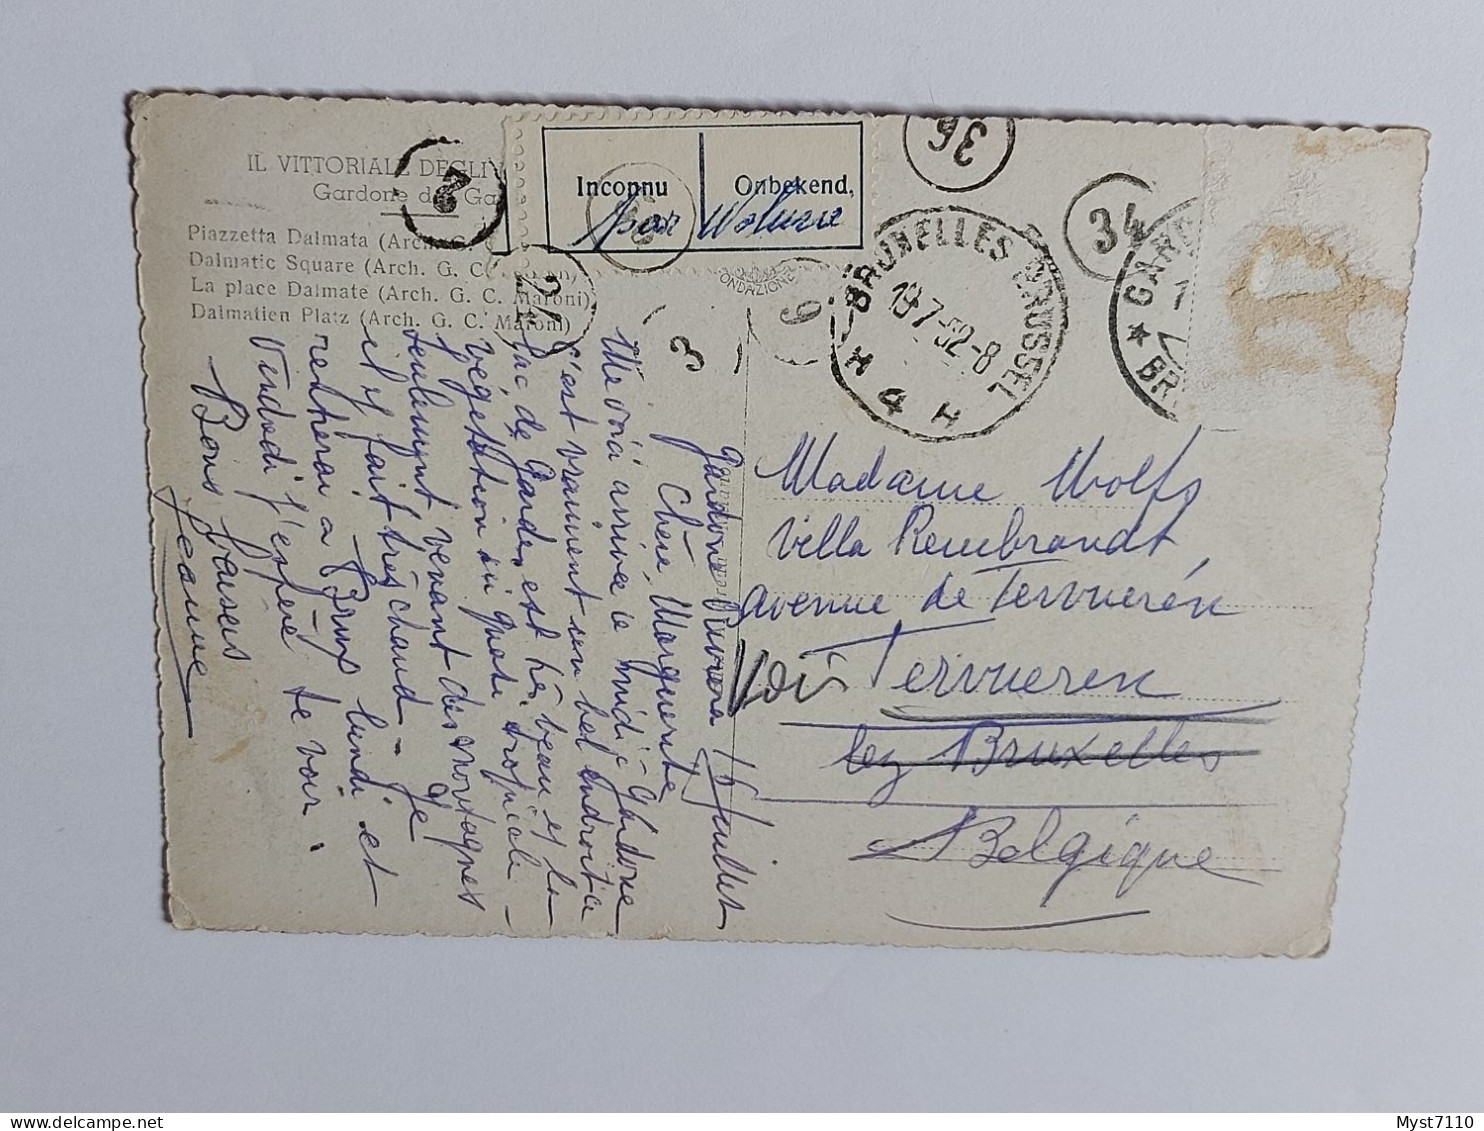 IL VITTORIALE DEGLI
Gardone del Ga
Piazzetta Dalmata (Arch. G. C.
Dalmatic Square (Arch. G. C. Maroni)
La place Dalmate (Arch. G. C. Maroni)
Dalmatien Platz (Arch. G. C. Maroni)
Inconnu
Onbekend,
par Woluwe
2
24
3
6
36
34
FONDAZIONE
BRUXELLES BRUSSEL
19-7-52-8
H 4 H
GARD
BR
Gardone Riviera 16 Juillet
Chère Marguerite,
Me voici arrivée à midi à Gardone
c'est vraiment un bel endroit le
lac de Garde, est très beau et la
végétation ici quasi tropicale -
seulement venant des montagnes
il y fait très chaud - Je
rentrerai à Brux lundi et
Vendredi j'espère te voir.
Bons baisers
Jeanne
Madame Wolfs
Villa Rembrandt
avenue de Tervueren
Voir Tervueren
lez Bruxelles
Belgique
Myst7110